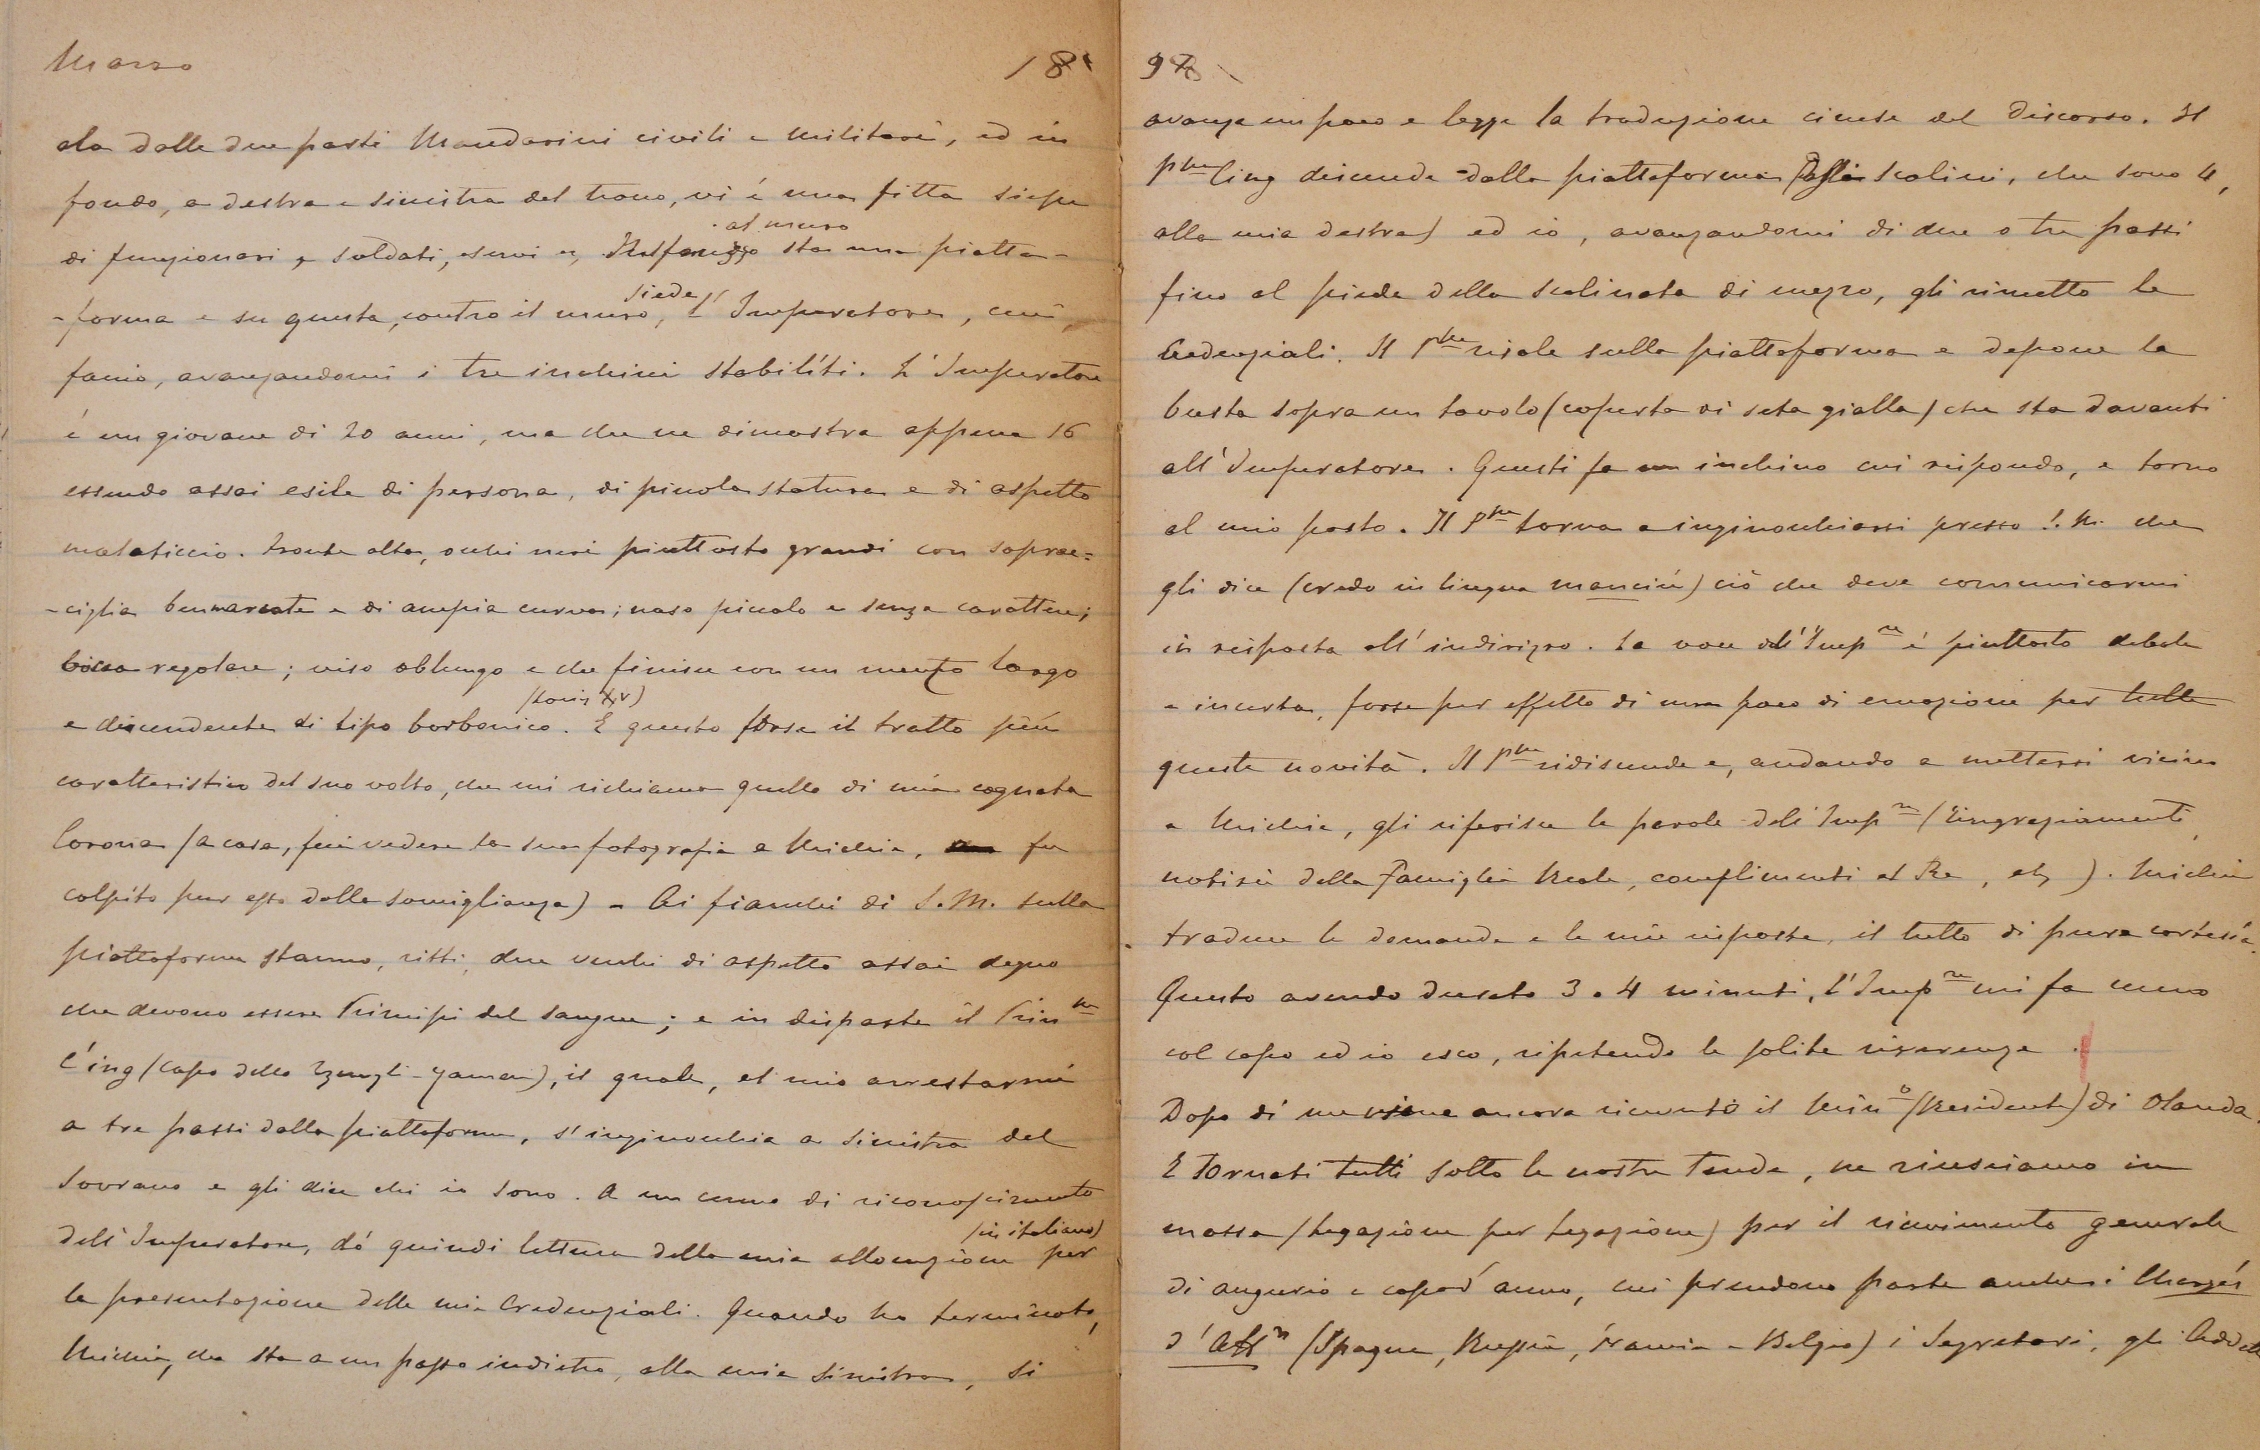 Marzo
18
ala dalle due parti Mandarini civili e militari, ed in
fondo, a destra e sinistra del trono, vi é una fitta siepe
di funzionari e soldati, servi ec. sta una piatta-
al muro
-forma e su questa, contro il muro, siede l'Imperatore, cui,
facio, avanzandomi i tre inchini stabiliti. L'Imperatore
é un giovane di 20 anni, ma che ne dimostra appena 16
essendo assai esile di persona, di piccola statura e di aspetto
malaticcio. Fronte alta, occhi neri piuttosto grandi con soprac=
-ciglia ben marcate e di ampia curva; naso piccolo e senza carattere;
bocca regolare; viso oblungo e che finisce con un mento largo
e discendente di tipo borbonico (Louis XV). E questo forse il tratto più
caratteristico del suo volto, che mi richiama quello di mia cognata
Corona (a casa, feci vedere la sua fotografia a Michie, fu
colpito pur esso dalla somiglianza) - Ai fianchi di S.M. sulla
piattaforma stanno, ritti, due vecchi di aspetto assai degno
che devono essere Principi del sangue; e in disparte il Prin.pe
C'ing (capo dello Tzungli-Yamen), il quale, al mio arrestarmi
a tre passi dalla piattaforma, s'inginocchia a sinistra del
Sovrano e gli dice chi io sono. A un cenno di riconoscimento
dell'Imperatore, dó quindi lettura della mia allocuzione (in italiano) per
la presentazione delle mie Credenziali. Quando ho terminato,
Michie, che sta a un passo indietro, alla mia sinistra, si
97
avanza un poco e legge la traduzione cinese del discorso. Il
P.pe Cing discende dalla piattaforma (dagli scalini, che sono 4,
alla mia destra) ed io, avanzandomi di due o tre passi
fino al piede della scalinata di mezzo, gli rimetto le
Credenziali. Il P.pe risale sulla piattaforma e depone la
busta sopra un tavolo (coperto di seta gialla) che sta davanti
all'Imperatore. Questi fa un inchino cui rispondo, e torno
al mio posto. Il P.pe torna a inginocchiarsi presso S.M. che
gli dice (credo in lingua manciú) ció che deve comunicarmi
in risposta all'indirizzo. La voce dell'Imp.re é piuttosto debole
e incerta, forse per effetto di un poco di emozione per tutte
queste novità. Il P.pe ridiscende e, andando a mettersi vicino
a Michie, gli riferisce le parole dell'Imp.re (Ringraziamenti,
notizie della Famiglia Reale, complimenti al Re, etc). Michie
traduce le domande e le mie risposte, il tutto di pura cortesia.
Questo avendo durato 3 o 4 minuti, l'Imp.re mi fa cenno
col capo ed io esco, ripetendo le solite riverenze.
Dopo di me viene ancora ricevuto il Min.o (Residente) di Olanda.
E tornati tutti sotto le nostre tende, ne riusciamo in
massa (legazione per legazione) per il ricevimento generale
di augurio e capod'anno, cui prendono parte anche i Chargés
d'Aff.s (Spagna, Russia, Francia e Belgio) i Segretari, gli Addetti